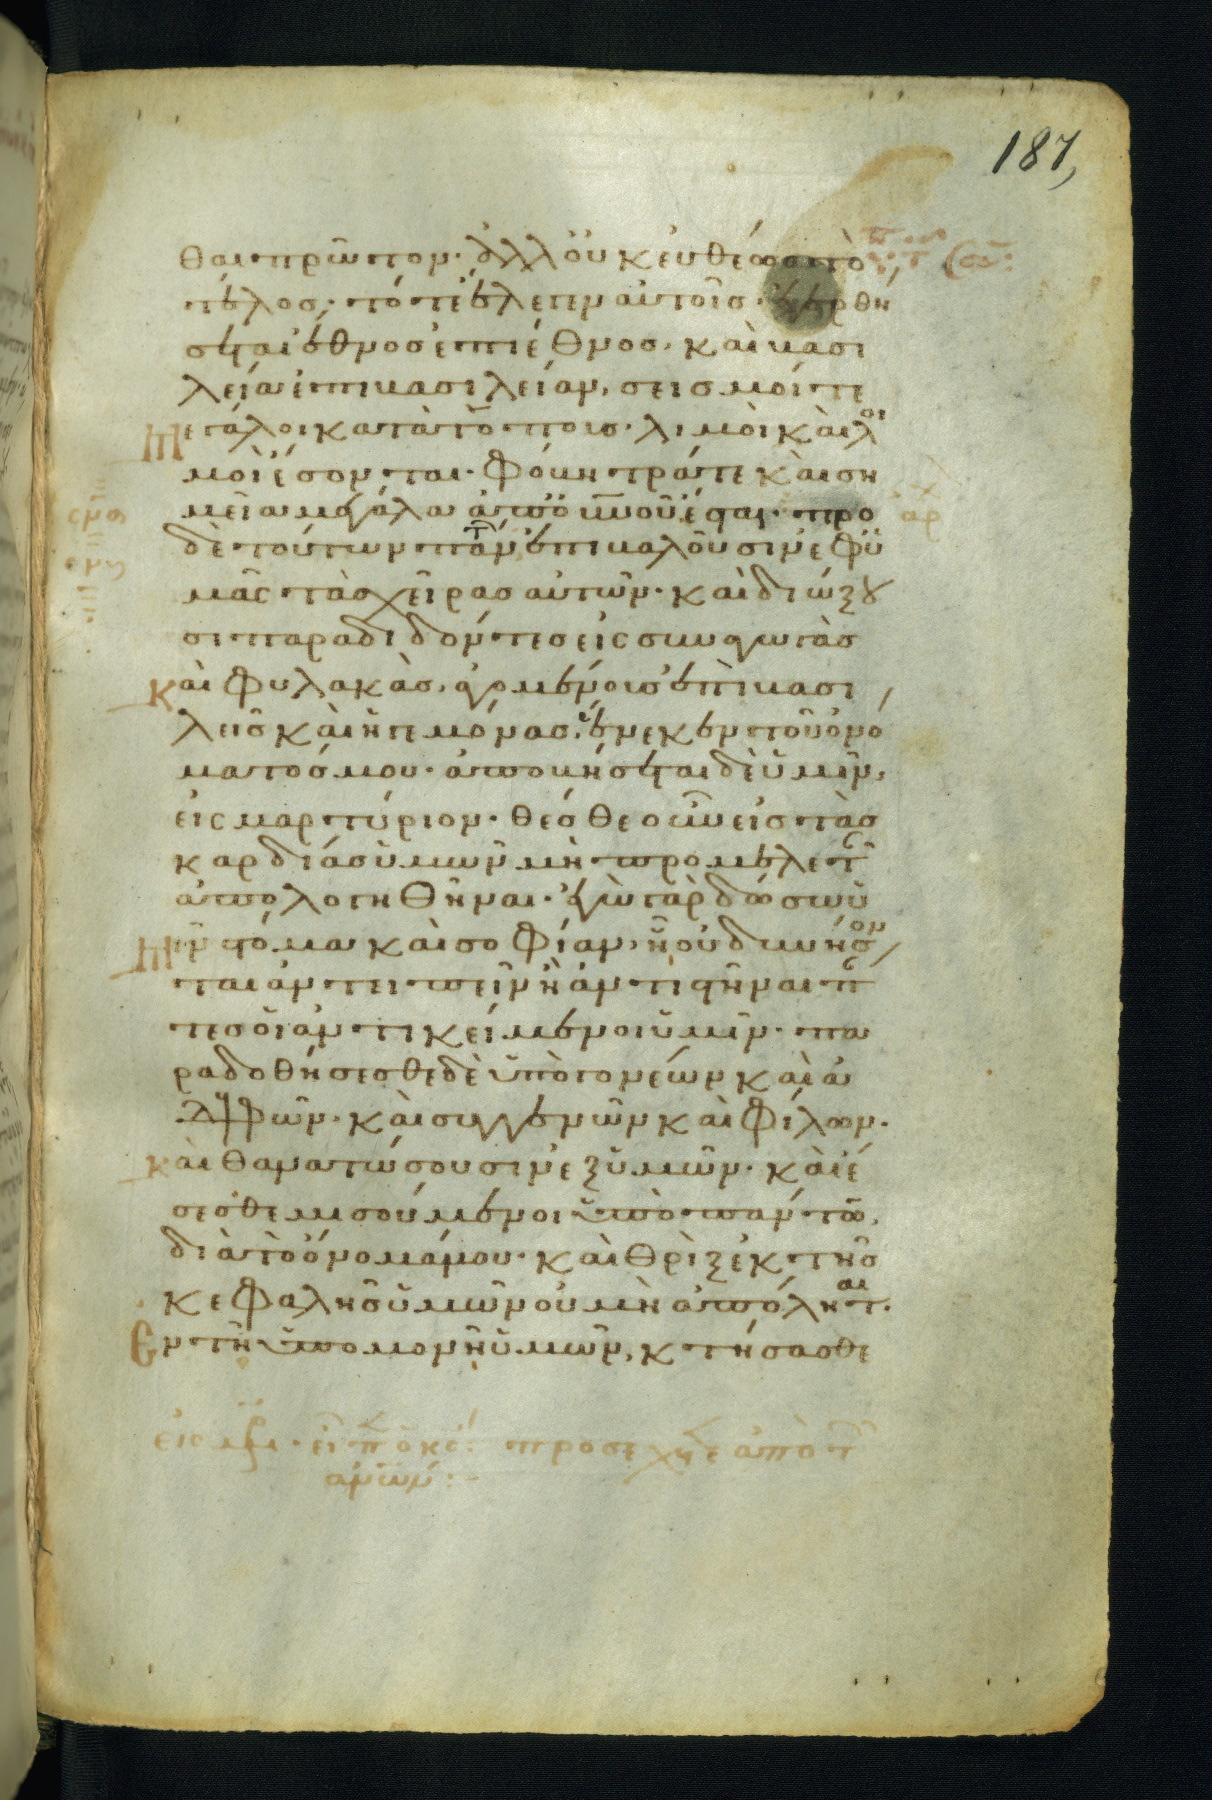 187
θαι πρῶτον· ἀλλ οὐκ εὐθέως τὸ
τέλος· τότε ἔλεγεν αὐτοῖς· ἐγερθή
σεται ἔθνος ἐπι ἔθνος, καὶ βασι
λεία ἐπι βασιλείαν, σεισμοί τε
μεγάλοι κατὰ τόπους· λιμοὶ καὶ λοι
μοὶ ἔσονται· φόβητρά τε καὶ ση
μεῖα μεγάλα ἀπὸ οὐνοῦ ἔσται· προ
δὲ τούτων πάντων ἐπιβαλοῦσιν ἐφ ὑ
μᾶς τὰς χεῖρας αὐτῶν· καὶ διώξου
σι παραδιδόντες εἰς συναγωγὰς
καὶ φυλακὰς, ἀγομένους ἐπὶ βασι
λεῖς καὶ ἡγεμόνας, ἕνεκεν τοῦ ὀνό
ματός μου· ἀποβήσεται δὲ ὑμῖν,
εἰς μαρτύριον· θέσθε οὖν εἰς τὰς
καρδίας ὑμῶν μὴ προμελετᾶν
ἀπολογηθῆναι· ἐγὼ γὰρ δώσω ὑ
μῖν στόμα καὶ σοφίαν, ἧ οὐ δυνήσον
ται ἀντειπεῖν ἢ ἀντιστῆναι πάν
τες οἱ ἀντικείμενοι ὑμῖν· πα
ραδοθήσεσθε δὲ ὑπὸ γονέων καὶ ἀ
δελφῶν· καὶ συγγενῶν καὶ φίλων·
καὶ θανατώσουσιν ἐξ ὑμῶν· καὶ ἔ
σεσθε μισούμενοι ὑπὸ πάντων,
διὰ τὸ ὄνομά μου· καὶ θρὶξ ἐκ τῆς
κεφαλῆς ὑμῶν οὐ μὴ ἀπόληται·
Ἐν τῇ ὑπομονῇ ὑμῶν, κτήσασθε
εἶπεν ὁ κς: προσέχετε ἀπὸ τῶν
ἀνων: